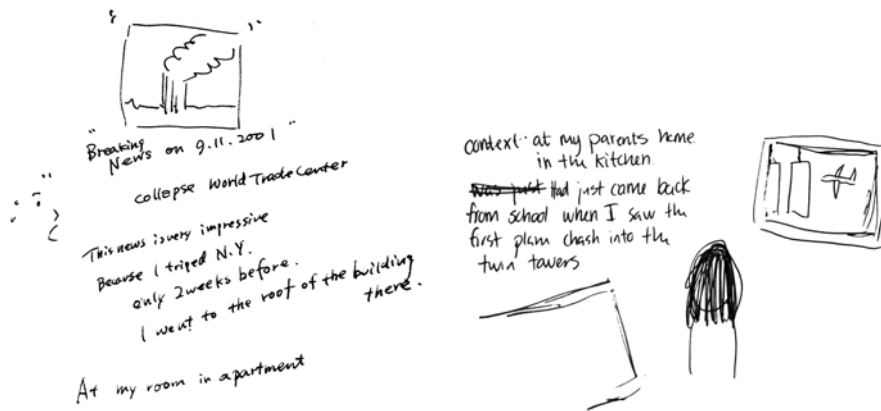 "Breaking
News on 9.11.2001"
collapse World Trade Center
This news is very impressive
Because I triped N.Y.
only 2 weeks before.
I went to the roof of the building
there.
At my room in apartment
context: at my parents home
in the kitchen.
was just Had just come back
from school when I saw the
first plam chash into the
twin towers